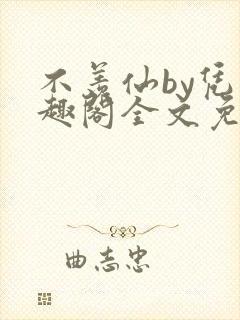 不善仙by凭
趣阁全文免
曲志忠